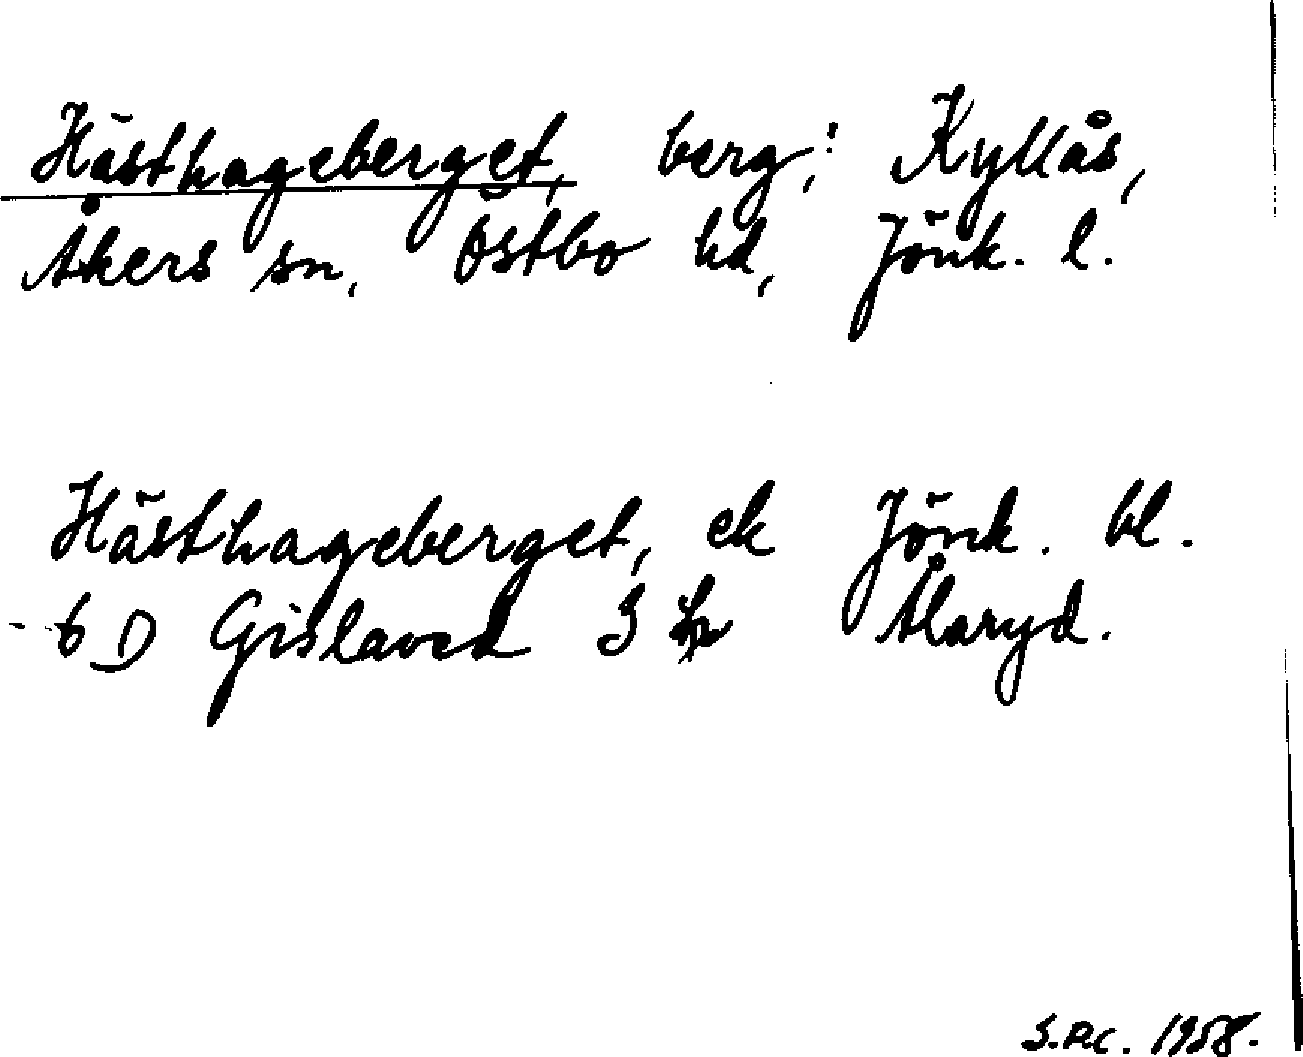 Hästhageberget, berg; Kyllås,
Åkers sn, Östbo hd, Jönk. l.
Hästhageberget, ek Jönk. bl.
6D Gislaved Ålaryd.
1958.